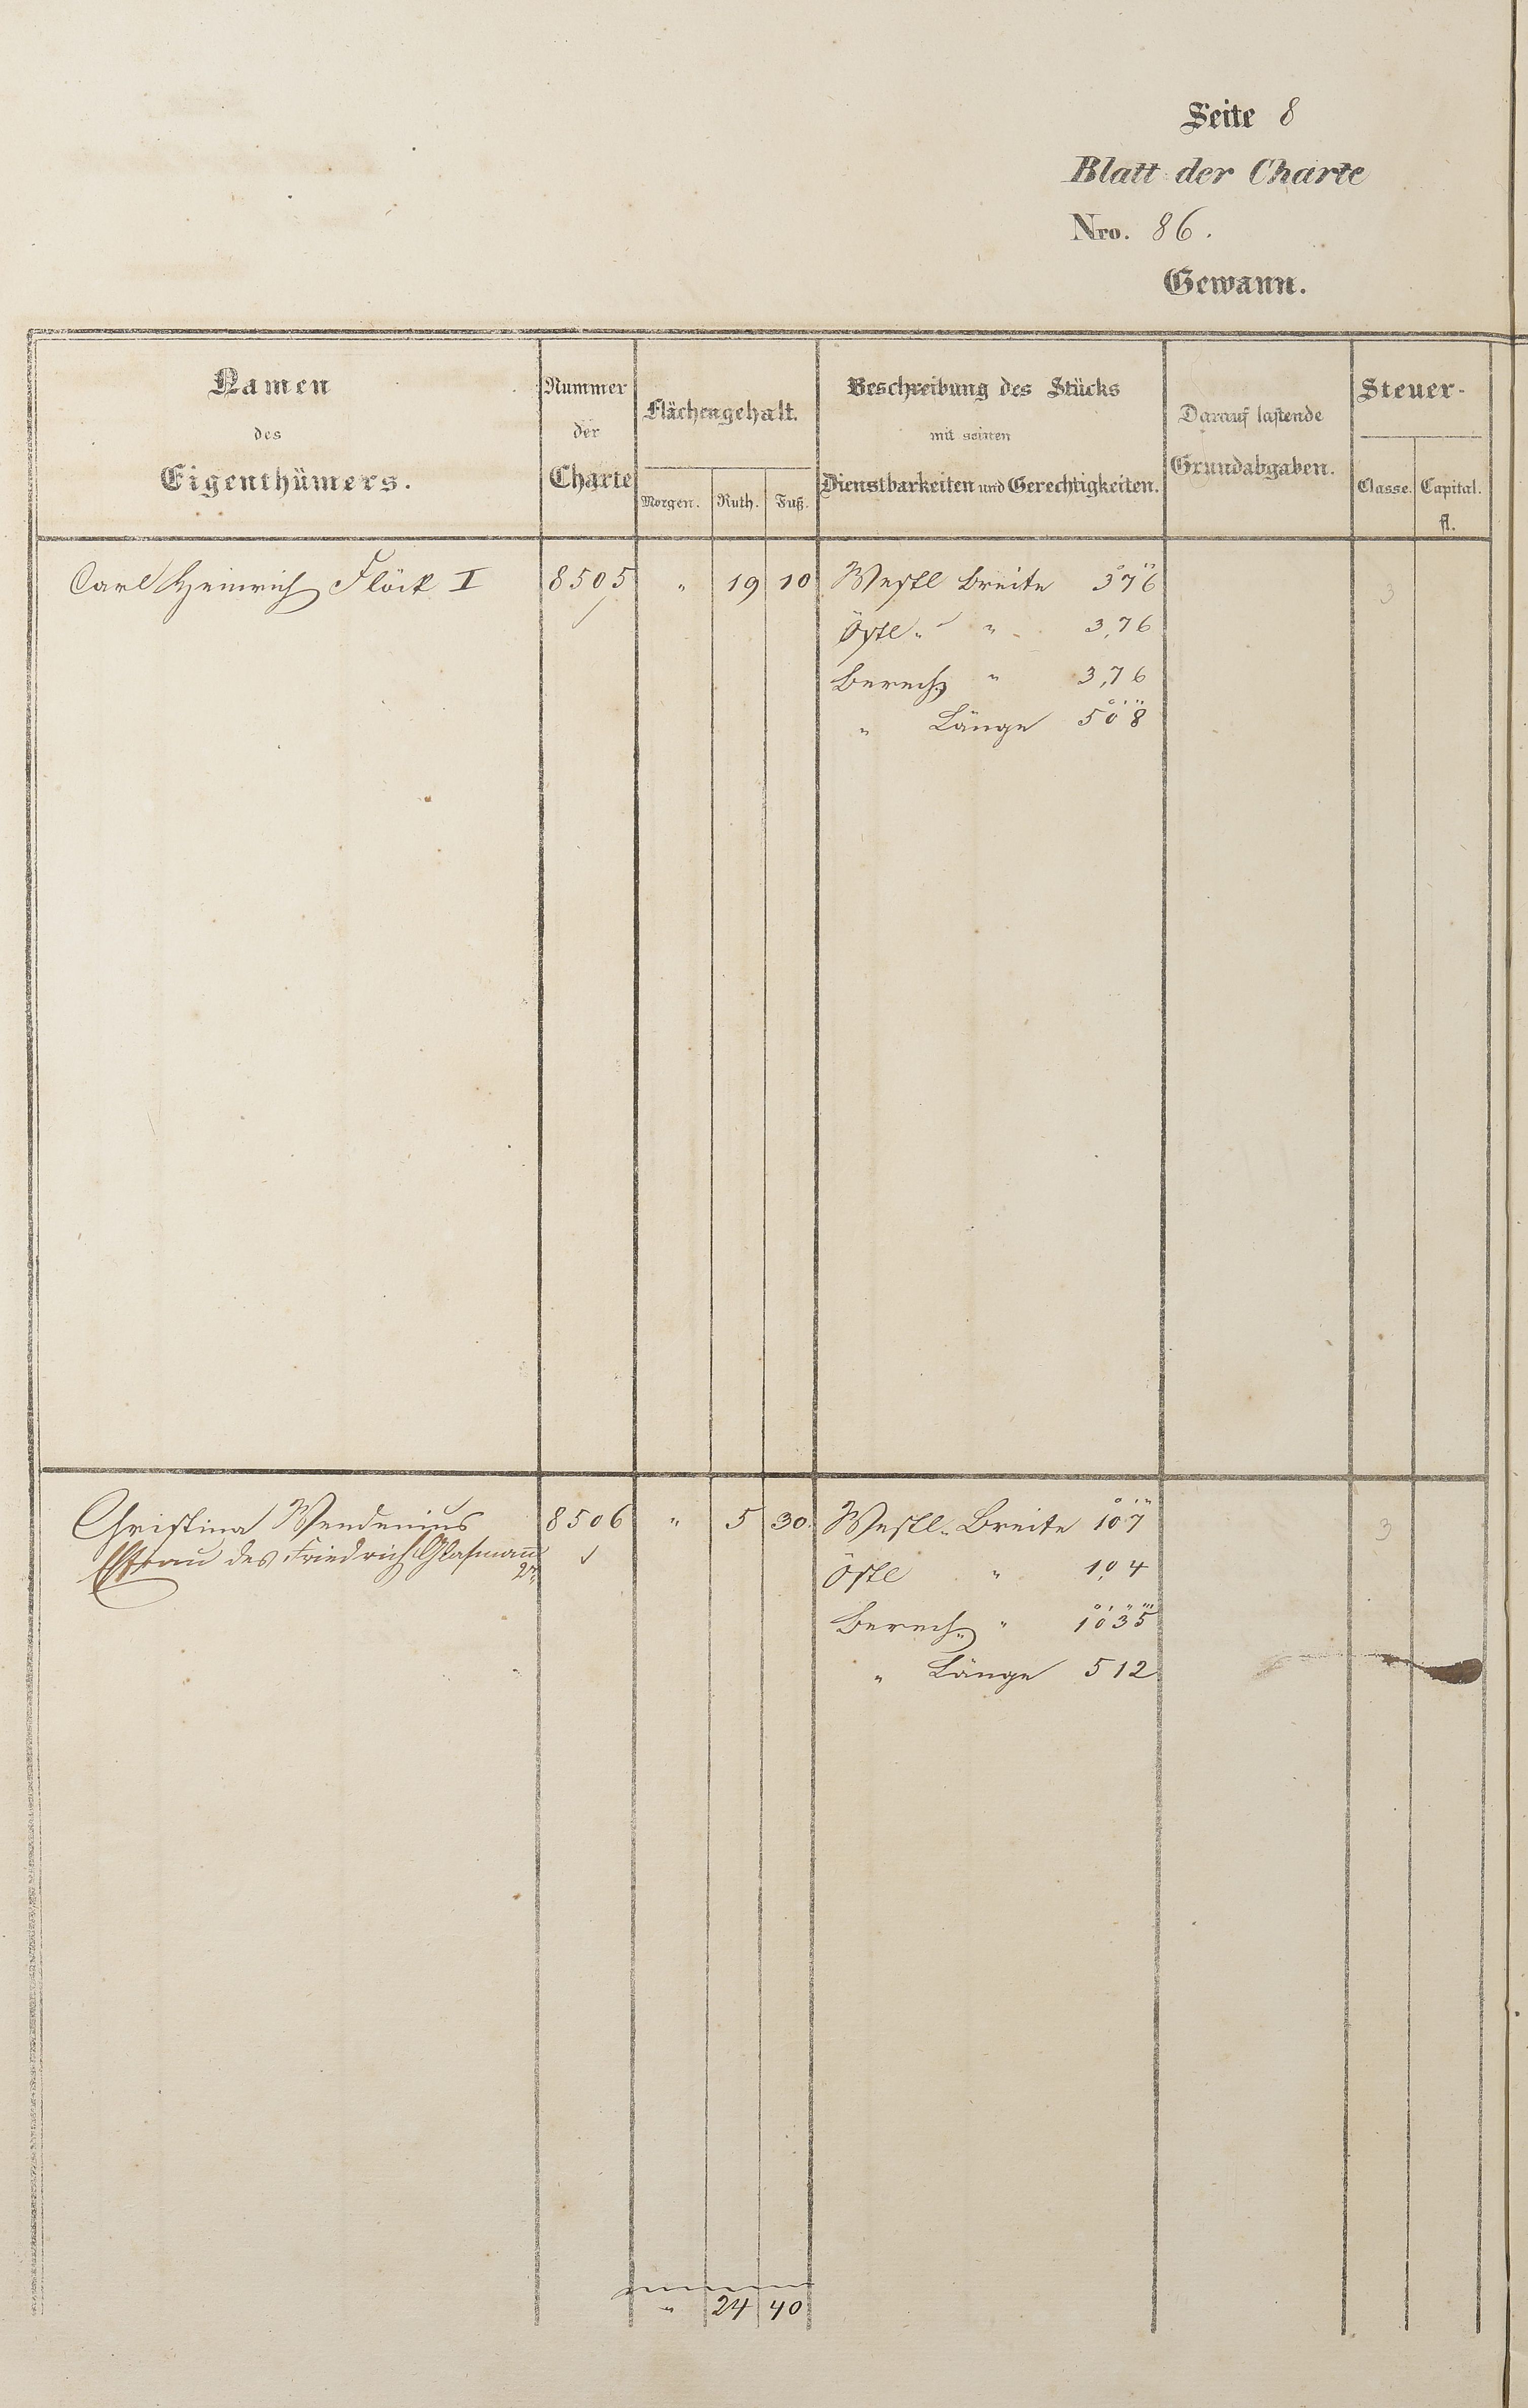 Seite 8
Blatt der Charte
Nro. 86.
Gewann.
Namen
des
Eigenthümers.
Nummer
der
Charte
Flächengehalt.
Morgen. Ruth. Fuß.
Beschreibung des Stücks
mit seinen
Dienstbarkeiten und Gerechtigkeiten.
Darauf lastende
Grundabgaben.
Steuer-
Classe. Capital.
fl.
Carl Heinrich Flöck I 8505 " 19 10 Westl Breite 376 3
Östl " " 3,76
Berech " 3,76
" Länge 508
Christina Wendenius 8506 " 5 30 Westl. Breite 107 3
Ehfrau des Friedrich Glasmann
Östl " 1,04
Berech " 1035
" Länge 512
" 24 40